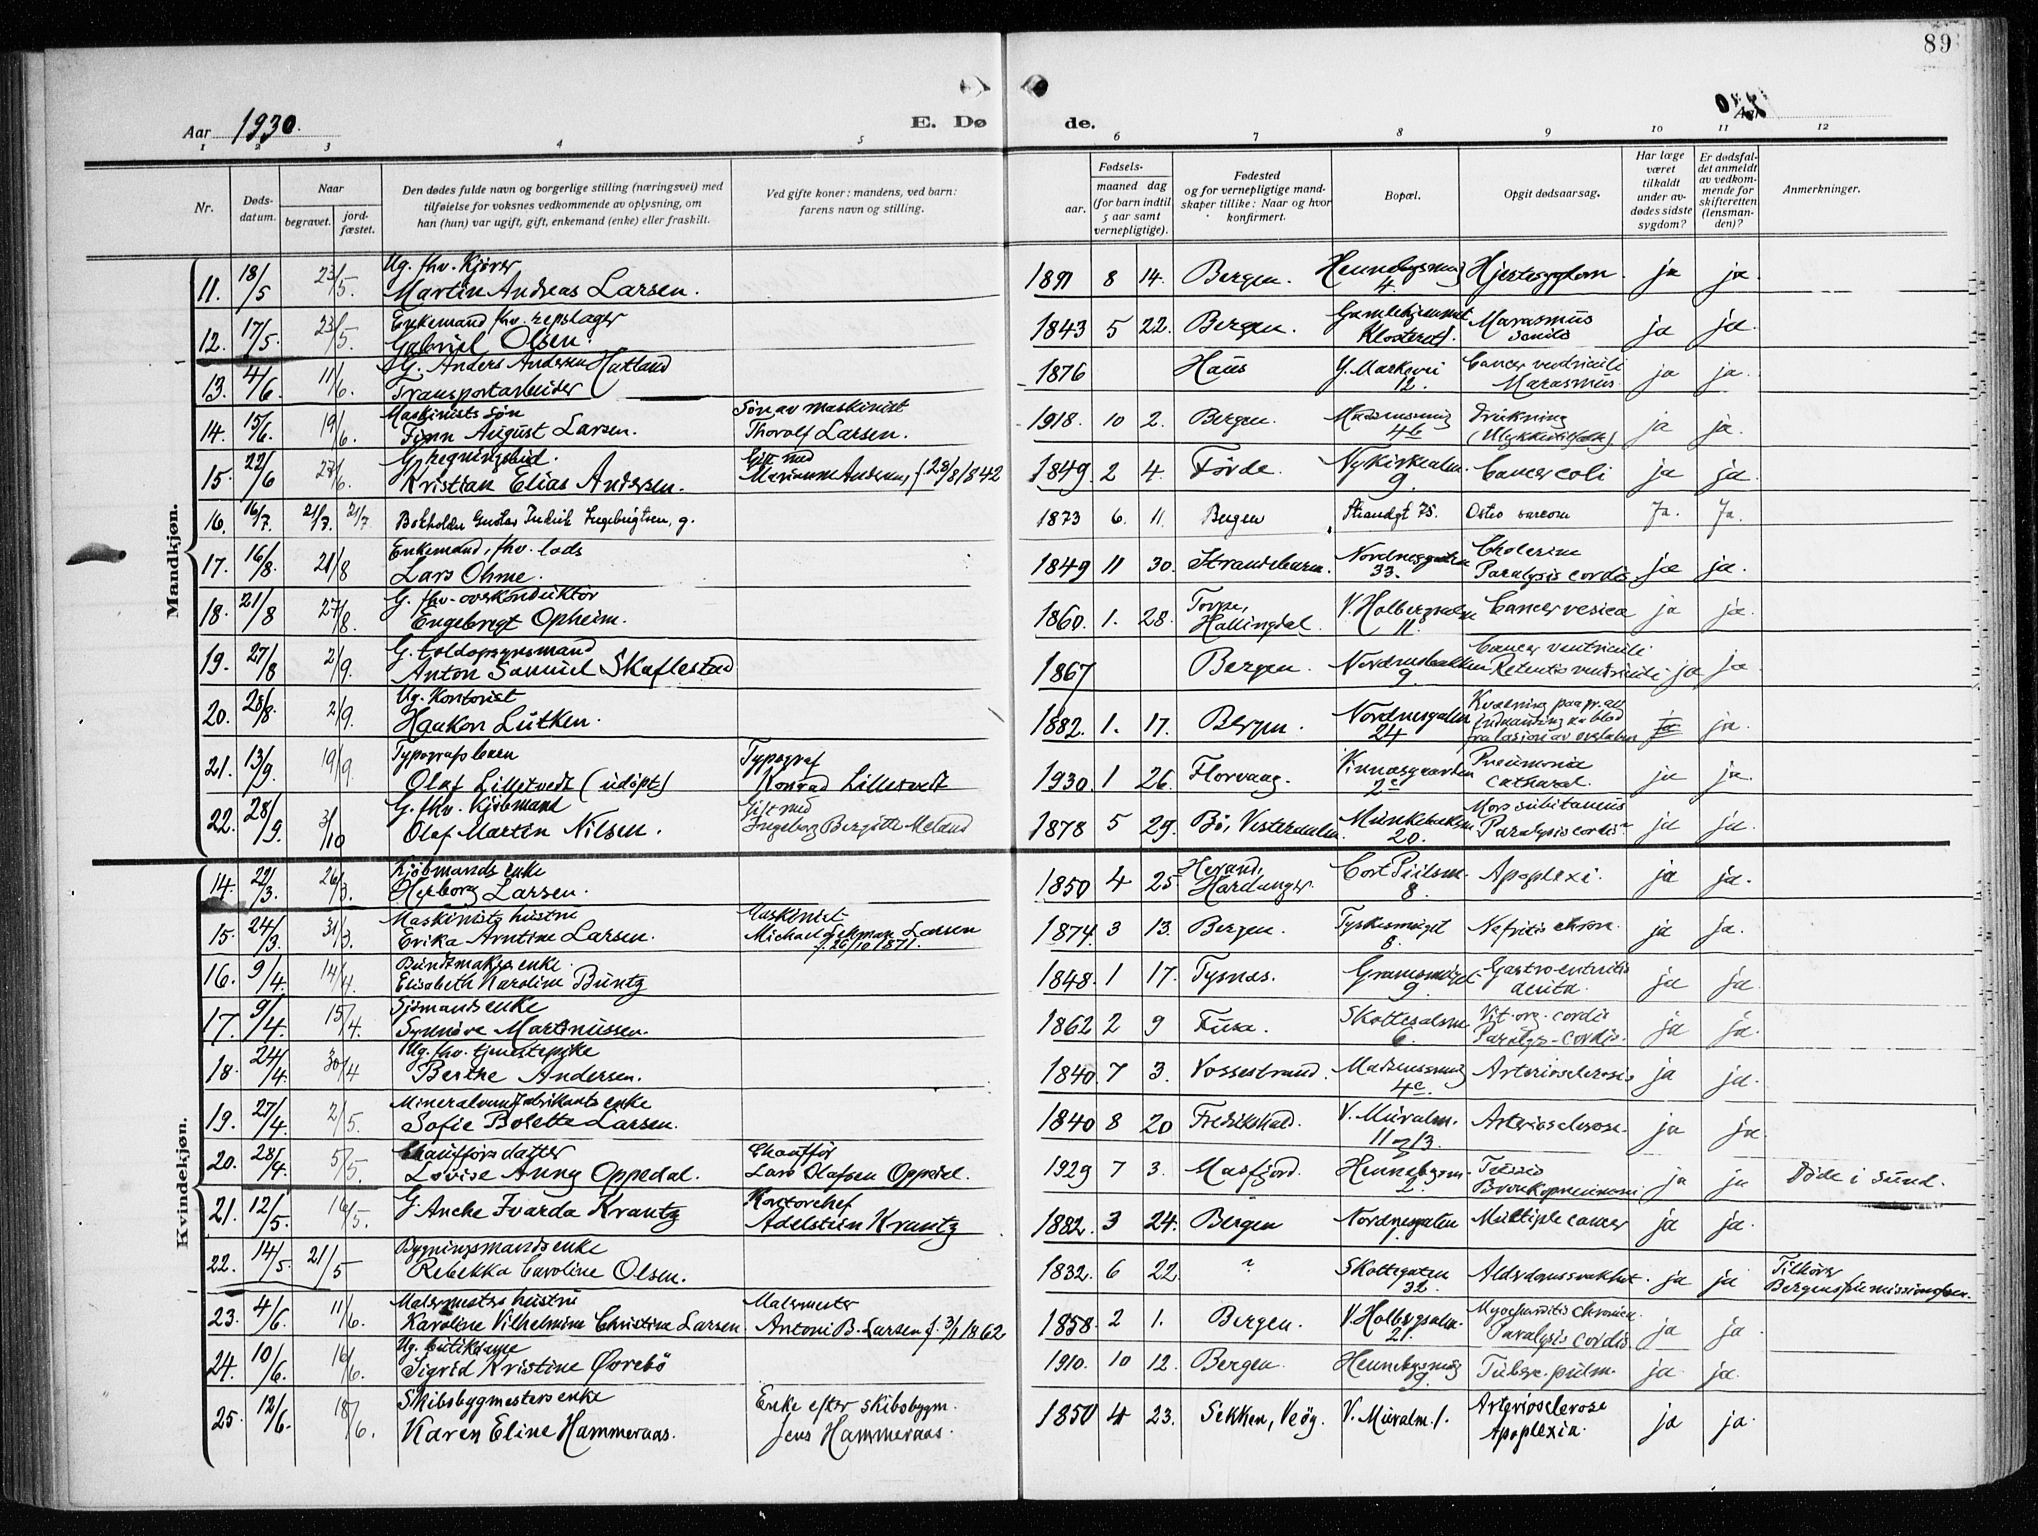 89
Aar 1930.
E. Døde.
1 2 3 4 5 6 7 8 9 10 11 12
Nr.
Døds-datum.
Naar
begravet.
jord-fæstet.
Den dødes fulde navn og borgerlige stilling (næringsvei) med tilføielse for voksnes vedkommende av oplysning, om han (hun) var ugift, gift, enkemand (enke) eller fraskilt.
Ved gifte koner: mandens, ved barn: farens navn og stilling.
Fødsels-
aar.
maaned dag
(for barn indtil 5 aar samt vernepligtige).
Fødested og for vernepligtige mandskaper tillike: Naar og hvor konfirmert.
Bopæl.
Opgit dødsaarsag.
Har læge været tilkaldt under avdødes sidste sygdom?
Er dødsfaldet anmeldt av vedkommende for skifteretten (lensmanden)?
Anmerkninger.
Mandkjøn.
11. 18/5 23/5. Ug. fhv. Kjører Martin Andreas Larsen. 1891 8 14. Bergen. 4. Hjertesygdom. ja ja.
12. 17/5. 23/5. Enkemand fhv. repslager Gabriel Olsen. 1843 5 22. Bergen. Gamlehjemmet Klosteret. Marasmus senilis ja ja.
13. 4/6. 11/6. G. Anders Andersen Hatland Transportarbeider 1876 Haus Y. Markevei 12. Cancer ventriculi Marasmus. ja ja.
14. 15/6. 19/6. Maskinists søn Finn August Larsen. Søn av maskinist Thoralf Larsen. 1918. 10 2. Bergen. 4b Drukning (Ulykkestilfælde) ja ja.
15. 22/6 27/6. G. regningsbud. Kristian Elias Andersen. Gift med Marianne Andersen, f. 28/8 1842 1849 2 4. Førde. Nykirkealm. 9. Cancer coli ja ja
16. 16/7. 21/7. 21/7. Bokholder Gustav Fredrik Ingebrigtsen, g. 1873 6. 11. Bergen Strandgt 75. Osteo sarcom Ja. Ja.
17. 16/8. 21/8 Enkemand, fhv. lods Lars Ohme. 1849 11 30. Strandebarm. Nordnesgaten 33. Cholerine Paralysis cordis. ja ja.
18. 21/8 27/8. G. fhv. overkonduktør Engebregt Opheim. 1860. 1. 28. Torpe, Hallingdal. V. Holbergsalm 11. Cancer vesica ja ja.
19. 27/8 2/9. G. toldopsynsmand Anton Samuel Skaflestad 1867 Bergen. Nordnesbakken 9. Cancer ventriculi Retentio ventriculi ja ja
20. 28/8. 2/9. Ug. Kontorist Haakon Lütken. 1882. 1. 17. Bergen. Nordnesgaten 24 Kvælning paa gr. av indaanding av blod fra læsion av overlæben ja ja.
21. 13/9. 19/9. Typografs barn Olaf Lilletvedt (udøpt) Typograf Konrad Lilletvedt 1930. 1 26. Florvaag. Vinnæsgaarden 2c Pneumonia catharal. ja ja.
22. 28/9. 3/10 G. fhv. Kjøbmand Olaf Martin Nilsen. Gift med Ingeborg Bergitte Meland 1878 5 29. Bø, Vesteraalen. Munkebæksm. 20. Mors subitaneus Paralysis cordis ja ja.
Kvindekjøn.
14. 22/3. 26/3. Kjøbmands enke Herborg Larsen. 1850 4 25. Herand, Hardanger. Cort Piilsm. 8. Apoplexi. ja ja.
15. 24/3. 31/3. Maskinists hustru Erika Arntine Larsen. Maskinist Michael Lekman Larsen f. 26/10 1871. 1874. 3 13. Bergen. Tyskesmuget 8. Nefritis chron. ja ja.
16. 9/4. 14/4. Bundtmakers enke. Elisabeth Karoline Buntz 1848. 1 17. Tysnæs. 9. Gastroenteritis acuta. ja ja.
17. 9/4. 15/4. Sjømands enke Synnøve Martinussen. 1862 2 9 Fusa. Skottesalm 6. Vit. org. cordis Paralys. cordis. ja ja.
18. 24/4. 30/4 Ug. fhv. tjenestepike Berthe Andersen. 1840. 7 3. Vossestrand. 4c. Arteriosclerosis ja ja.
19. 27/4. 2/5. Mineralvandfabrikants enke Sofie Bolette Larsen. 1840 8 20 Fredrikshald. V. Muralm. 11 og 13. Arteriosclerose. ja ja.
20. 28/4. 5/5. Chaufførs datter Lovise Anny Oppedal. Chauffør Lars Olafsen Oppedal. 1929 7 3. Masfjord. 2. Tussis Bronkopneumoni ja ja Døde i Sund.
21. 12/5. 16/5. G. Anche Fvarda Krantz Kontorchef Adelstien Krantz 1882. 3 24. Bergen Nordnesgaten 1. Multiple cancer ja ja.
22. 14/5. 21/5 Bygningsmands enke Rebekka Caroline Olsen. 1832. 6 22. ? Skottegaten 32. Alderdomssvakhet. ja ja Tilhører Bergens frie missionsfor.
23. 4/6. 11/6. Malermesters hustru Karoline Vilhelmine Christine Larsen. Malermester Antoni B. Larsen f. 3/1 1862 1858. 2 1. Bergen. V. Holbergsalm. 21. Myocharditis chronica. Paralysis cordis. ja ja
24. 10/6. 16/6. Ug. butikdame Sigrid Kristine Øvrebø 1910. 10 12. Bergen. 9. Tuberc. pulm. ja ja.
25. 12/6. 18/6. Skibsbygmesters enke Karen Eline Hammeraas. Enke efter skibsbygm. Jens Hammeraas. 1850 4 23. Sekken, Veøy. V. Muralm. 1. Arteriosclerose Apoplexia. ja ja.